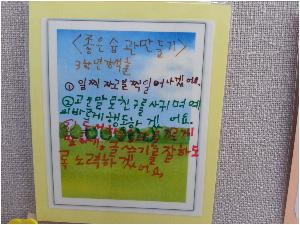 <좋은 습관 만들기>
3학년
① 일찍 자고 일찍 일어나겠어요.
② 고운말로 친구를 사귀며 예
의바르게 행동하겠어요.
글쓰기를 잘하도
록 노력하겠어요.